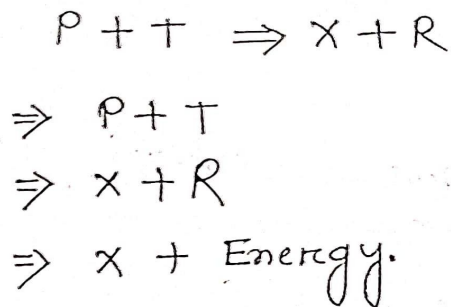 P + T ⇒ X + R
⇒ P + T
⇒ X + R
⇒ X + Energy.